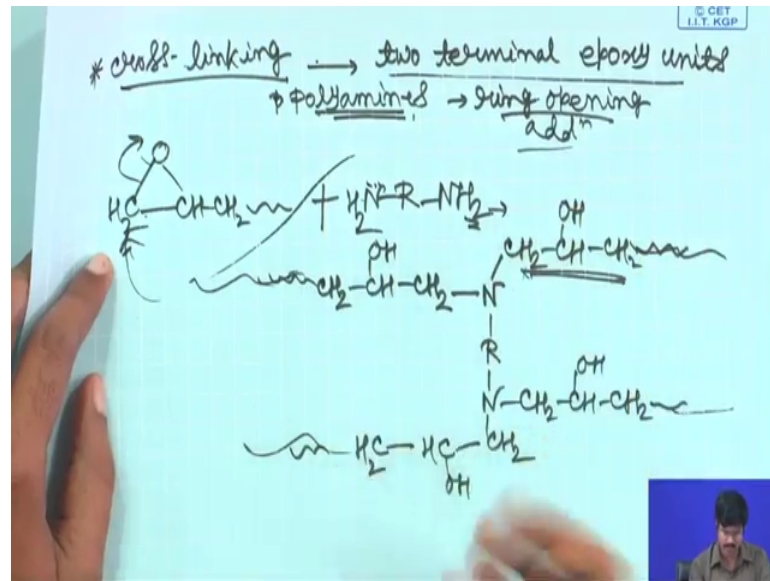 © CET
I.I.T. KGP
* cross-linking → two terminal epoxy units
* polyamines → ring opening
addⁿ
O
H₂C-CH-CH₂ + H₂N̈-R-NH₂ →
OH
CH₂-CH-CH₂
OH
CH₂-CH-CH₂-N
R
OH
N-CH₂-CH-CH₂
H₂C-HC-CH₂
OH